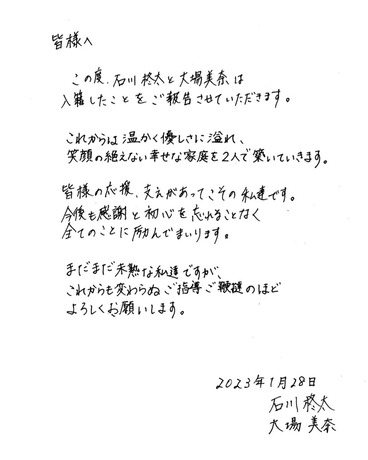 皆様へ
この度、石川柊太と大場美奈は
入籍したことをご報告させていただきます。
これからは温かく優しさに溢れ、
笑顔の絶えない幸せな家庭を2人で築いていきます。
皆様の応援、支えがあってこその私達です。
今後も感謝と初心を忘れることなく
全てのことに励んでまいります。
まだまだ未熟な私達ですが、
これからも変わらぬご指導ご鞭撻のほど
よろしくお願いします。
2023年1月28日
石川柊太
大場美奈